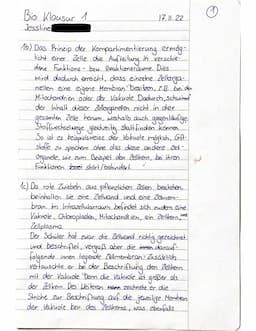 Bio Klausur 1 17.11.22 1
Jessline
1b) Das Prinzip der Kompartimentierung ermög-
licht einer Zelle die Aufteilung in verschie-
dene Funktions- bzw. Reaktionsräume. Dies
wird dadurch erreicht, dass einzelne Zellorga-
nellen eine eigene Membran besitzen, z.B. bei den
Mitochondrien oder der Vakuole. Dadurch, schwimmt
der Inhalt dieser Zellorganellen nicht in der
gesamten Zelle herum, weshalb auch gegenläufige
Stoffwechselwege gleichzeitig stattfinden können.
So ist es beispielsweise der Vakuole möglich, Gift-
stoffe zu speichern ohne das diese andere Zell-
organelle, wie zum Beispiel den Zellkern, bei ihren
Funktionen
1c) Da rote Zwiebeln aus pflanzlichen Zellen bestehen,
beinhalten sie eine Zellwand und eine Zellmem-
bran. Im Intrazellularraum befindet sich zudem eine
Vakuole, Chloroplasten, Mitochondrien, ein Zellkern, und
Zellplasma.
Der Schüler hat zwar die Zellwand richtig gezeichnet
und beschriftet, vergaß aber die darauf-
folgende innen liegende Zellmembran. Zusätzlich
vertauschte er bei der Beschriftung den Zellkern
mit der Vakuole. Denn die Vakuole ist größer als
der Zellkern. Des Weiteren zeichnete er die
Striche zur Beschriftung auf die jeweilige Membran
der Vakuole bzw. des Zellkerns, was ebenfalls